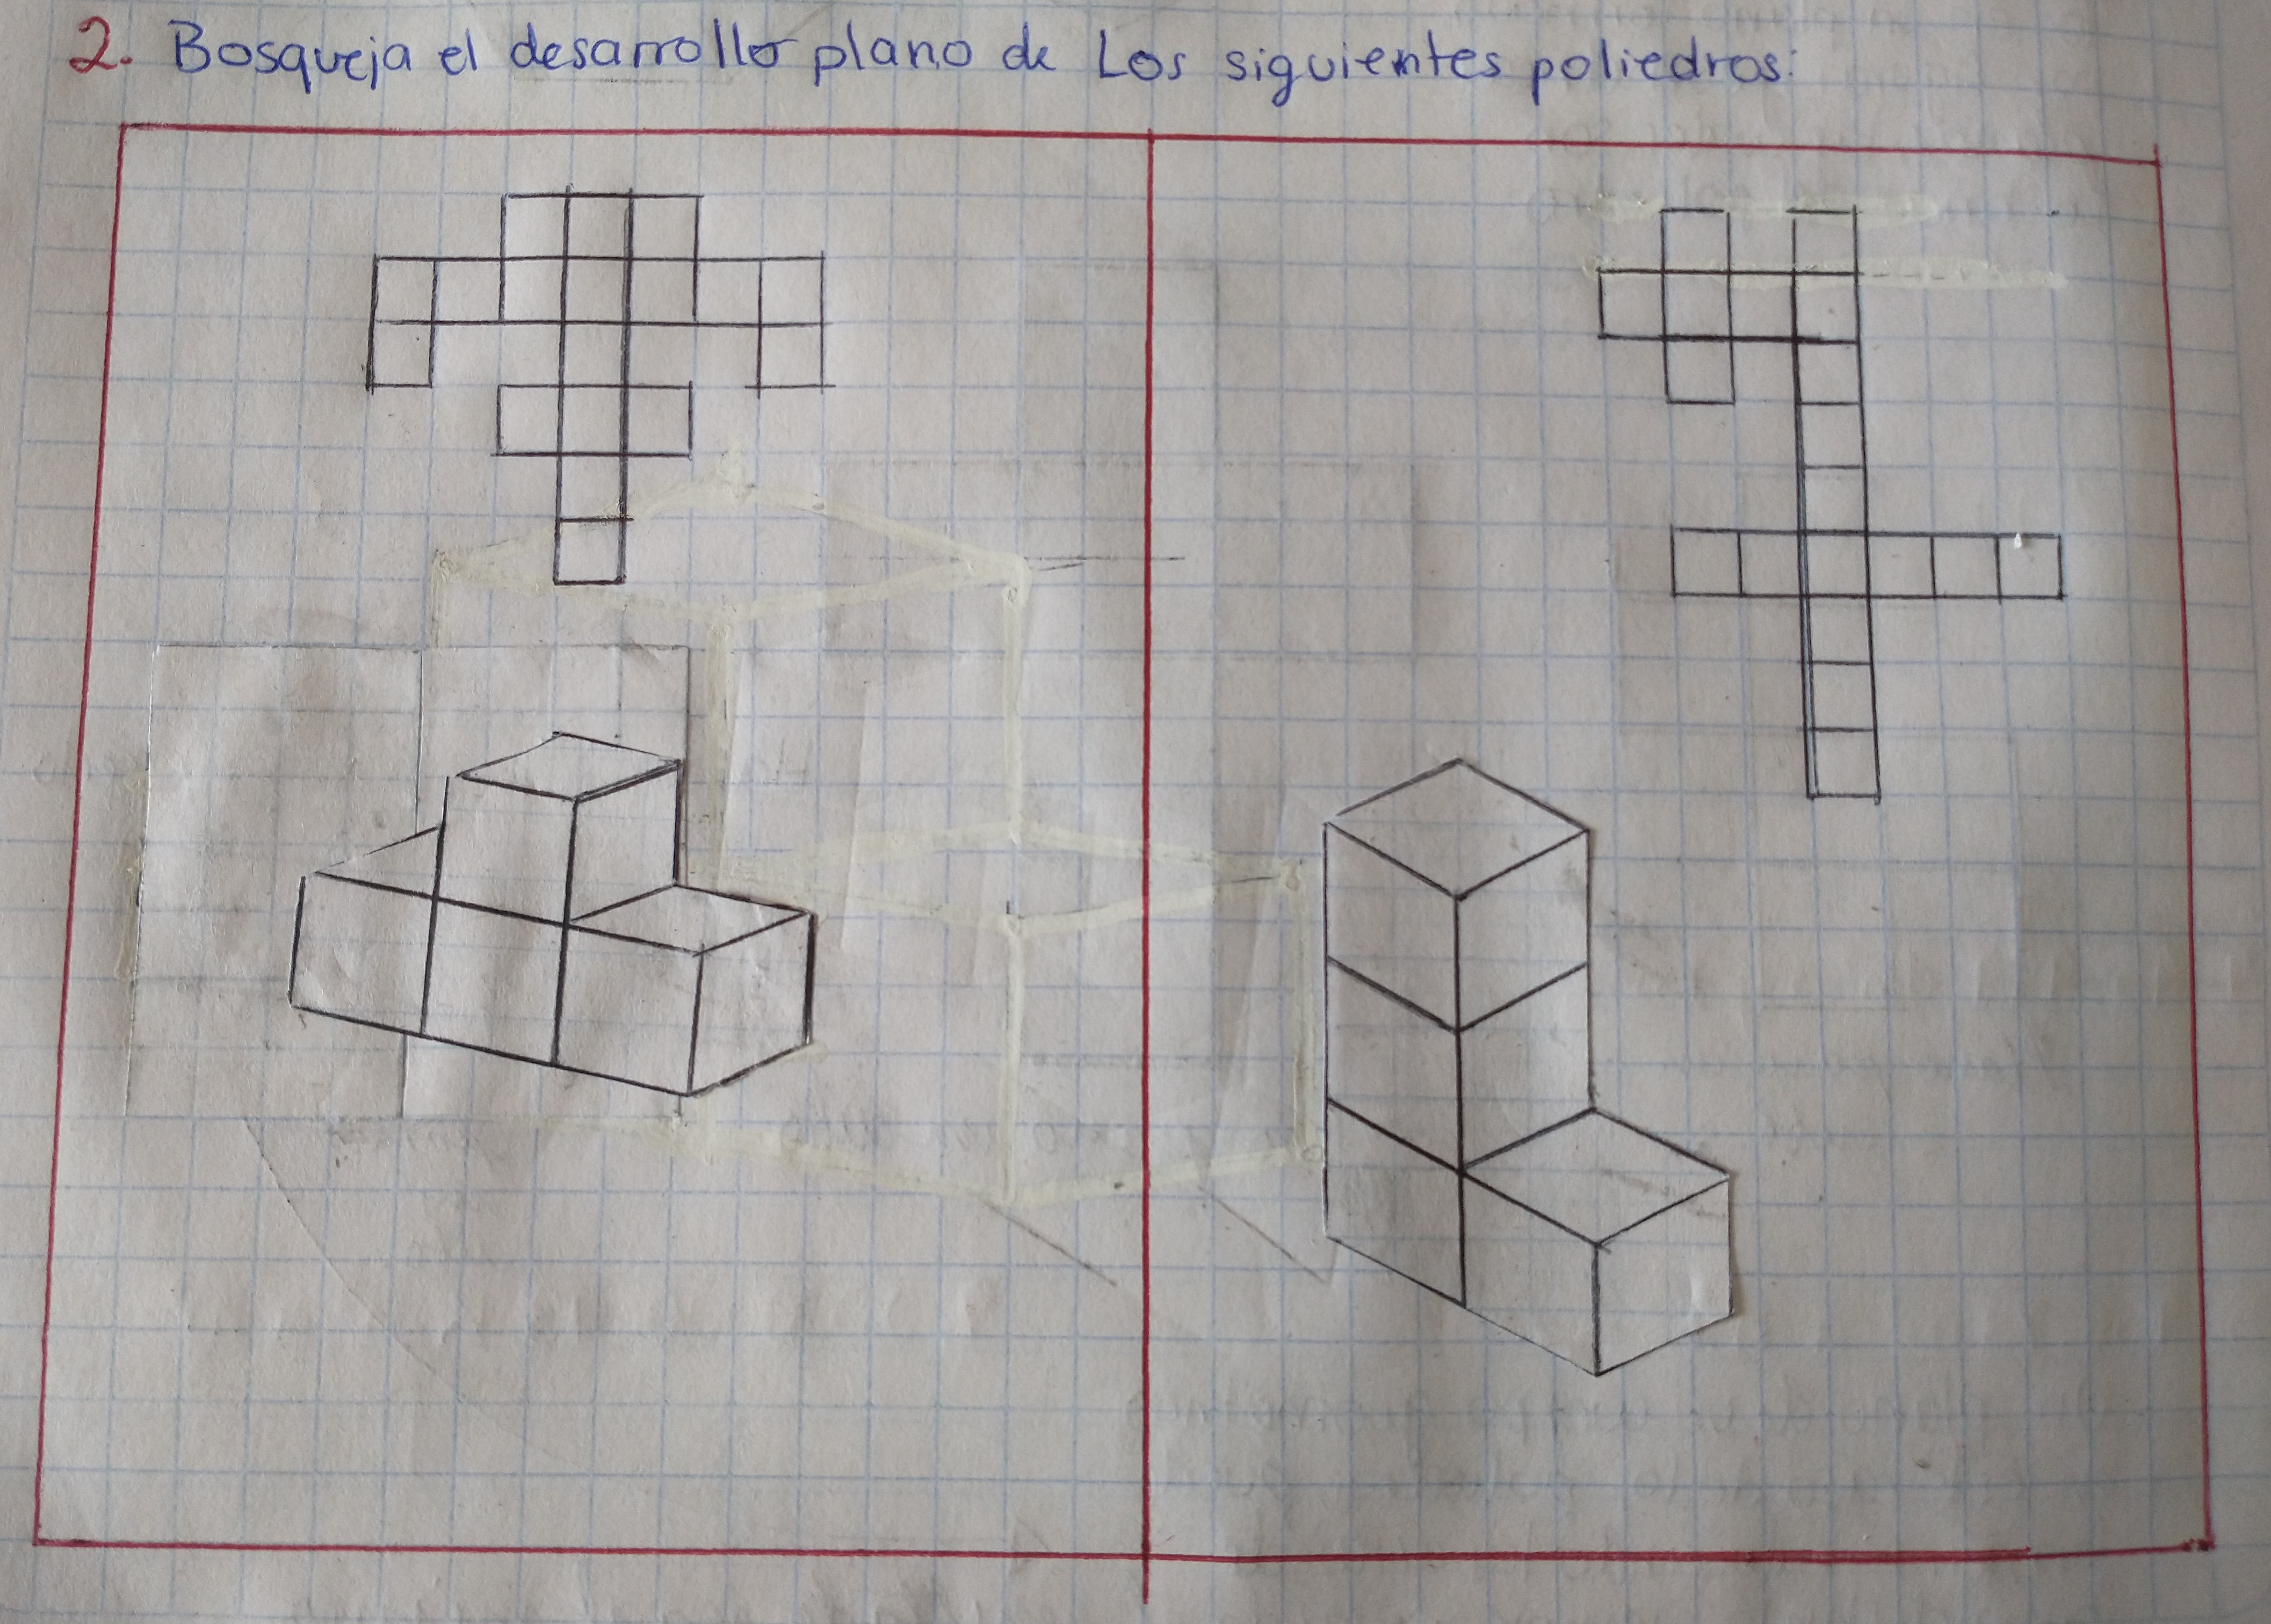 2. Bosqueja el desarrollo plano de Los siguientes poliedros: